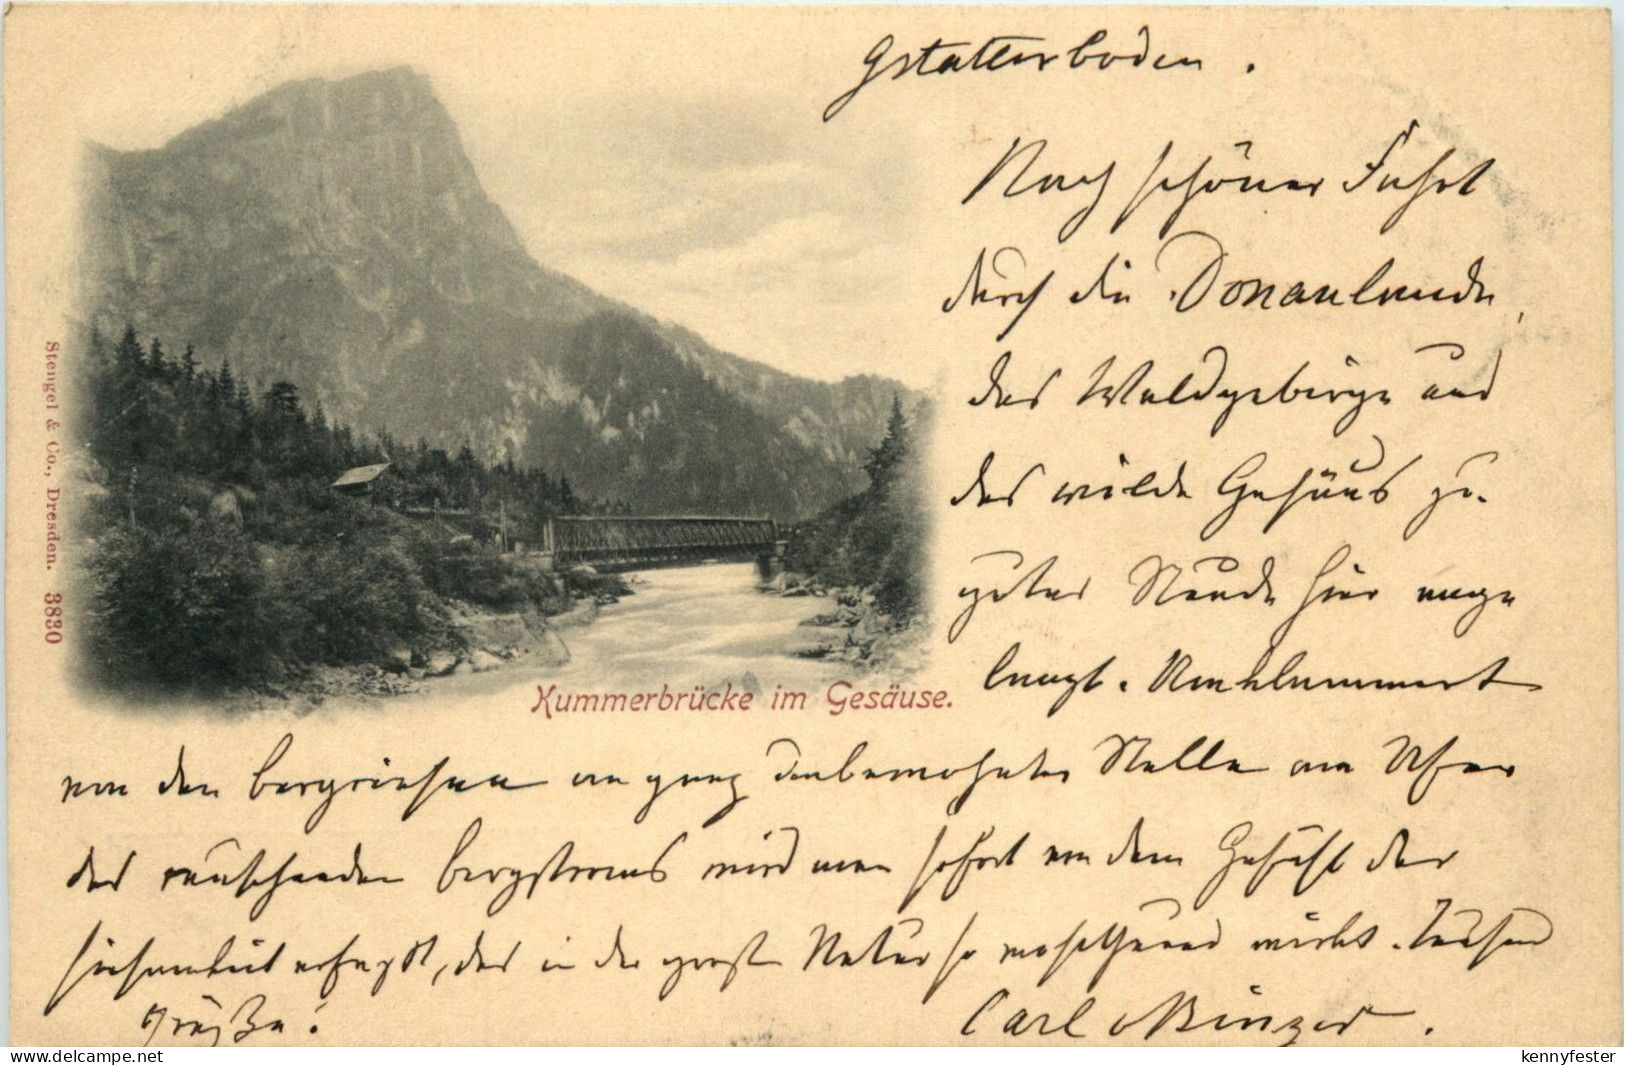 Gstatterboden.
Nach schöner Fahrt
durch die Donaulande,
das Waldgebirge und
das wilde Gesäus zu
guter Stunde hier ange
langt. Umklammert
von den Bergriesen an ganz unbewohnter Stelle am Ufer
des rauschenden Bergstroms wird man sofort von dem Gefühl der
Einsamkeit erfaßt, das in der große Natur so wohlthuend wirkt. Tausend
Grüße!
Carl Binzer.
Kummerbrücke im Gesäuse.
Stengel & Co., Dresden. 3830
www.delcampe.net
kennyfester